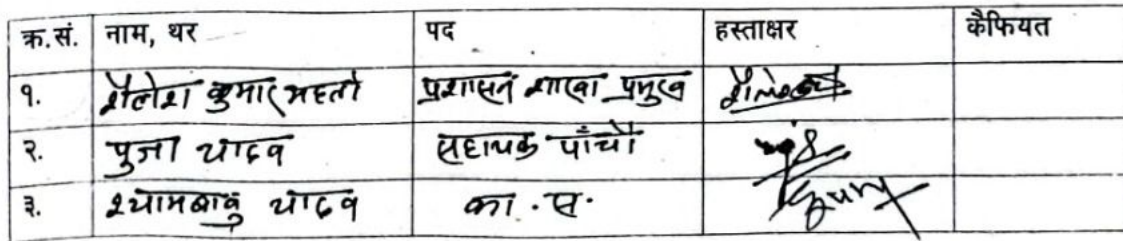 क्र.सं. नाम, थर पद हस्ताक्षर कैफियत
१. शैलेश कुमार महतो प्रशासन शाखा प्रमुख
२. पुजा यादव सहायक पाँचौ
३. श्यामबाबु यादव का.स.